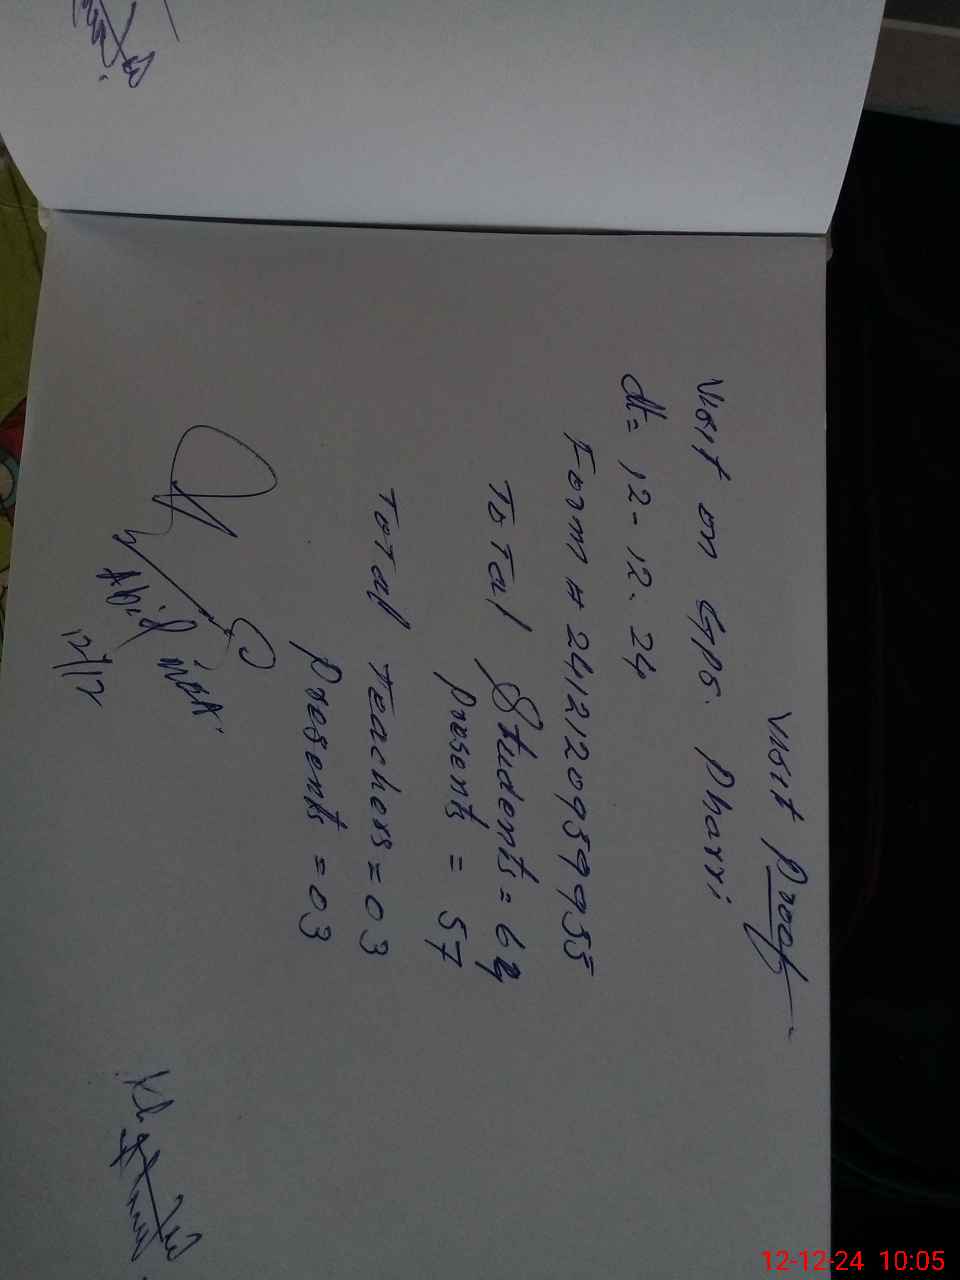 Visit Proof
Visit on GPS. Pharri
dt= 12-12-24
Form # 24121209599355
Total Students = 64
presents = 57
Total Teachers = 03
presents = 03
Abid
12/12
12-12-24 10:05